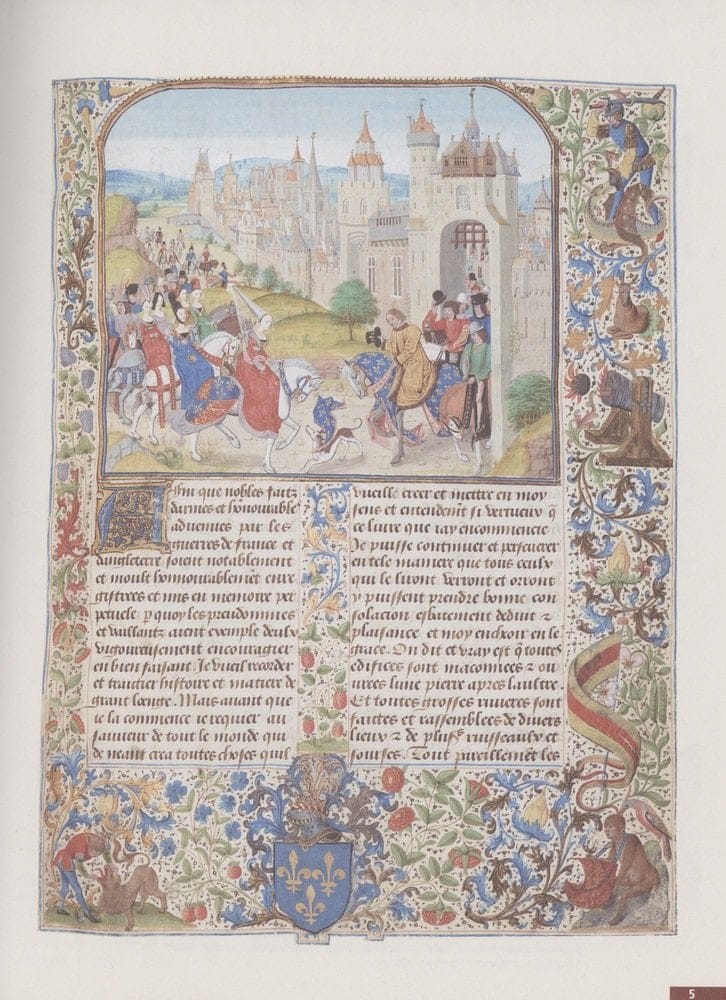 Afin que nobles faitz
darmes et honnourables
aduenues par les
guerres de france et
dangleterre soient notablement
et moult honnourablemēt enre
gistrees et mis en memoire per
petuele p quoy les preudommes
et vaillants aient exemple deulx
vigoureusement encouragier
en bien faisant Je vueil recorder
et traictier histoire et matiere de
grant loenge. Mais auant que
ie la commence ie requier au
sauueur de tout le monde que
de neant crea toutes choses quil
vueille creer et mettre en moy
sens et entendemēt si vertueux q̄
ce liure que iay encommencie
Je puisse continuer et perseuerer
en tele maniere que tous ceulx
qui le liront verront et orront
y puissent prendre bonne con
solacion esbatement deduit ⁊
plaisance et moy encheoir en le
grace. On dit et vray est q̄ toutes
edifices sont maconnees ⁊ ou
urees lune pierre apres lautre.
Et toutes grosses riuieres sont
faittes et rassemblees de diuers
lieux ⁊ de plusrs ruisseaulx et
sourses. Tout pareillement les
5